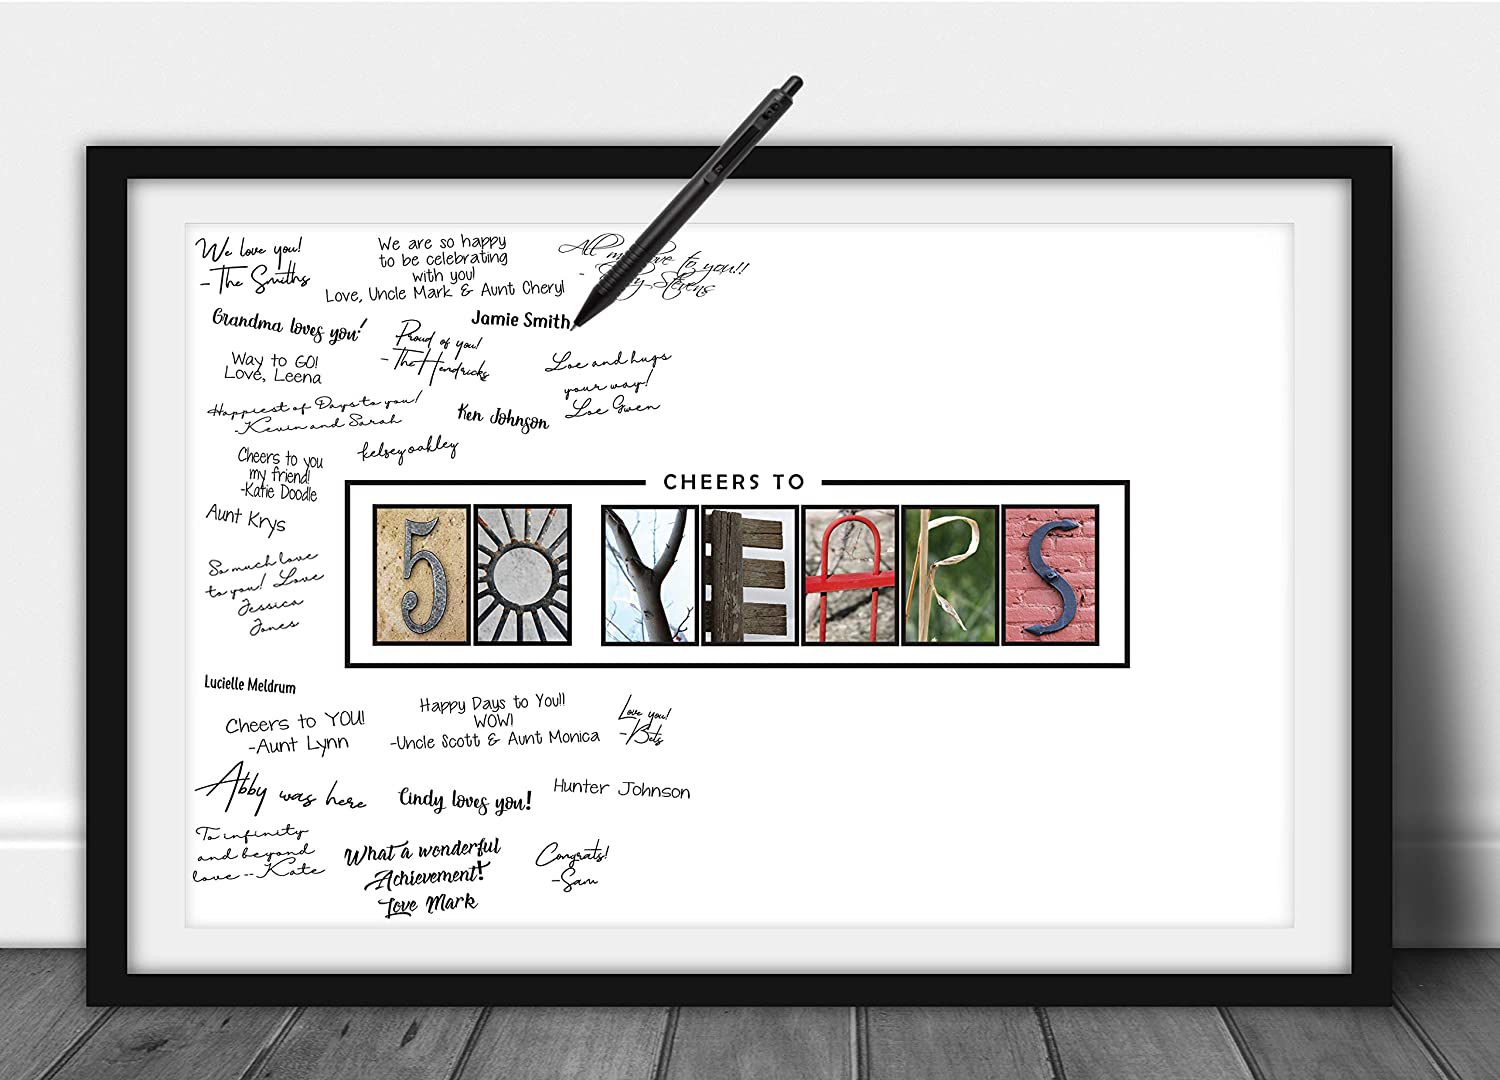 We love you!
-The Smiths
We are so happy
to be celebrating
with you!
Love, Uncle Mark & Aunt Cheryl
All my love to you!!
- Stevens
Grandma loves you!
Proud of you!
-The Hendricks
Jamie Smith
Way to GO!
Love, Leena
Loe and hugs
your way!
Loe Gwen
Happiest of Days to you!
-Kevin and Sarah
Ken Johnson
kelsey oakley
Cheers to you
my friend!
-Katie Doodle
Aunt Krys
So much love
to you! Love
Jessica
Jones
CHEERS TO
50 YEARS
Lucielle Meldrum
Cheers to YOU!
-Aunt Lynn
Happy Days to You!!
WOW!
-Uncle Scott & Aunt Monica
Love you!
-Bets
Abby was here
Cindy loves you!
Hunter Johnson
To infinity
and beyond
love -- Kate
What a wonderful
Achievement!
Love Mark
Congrats!
-Sam